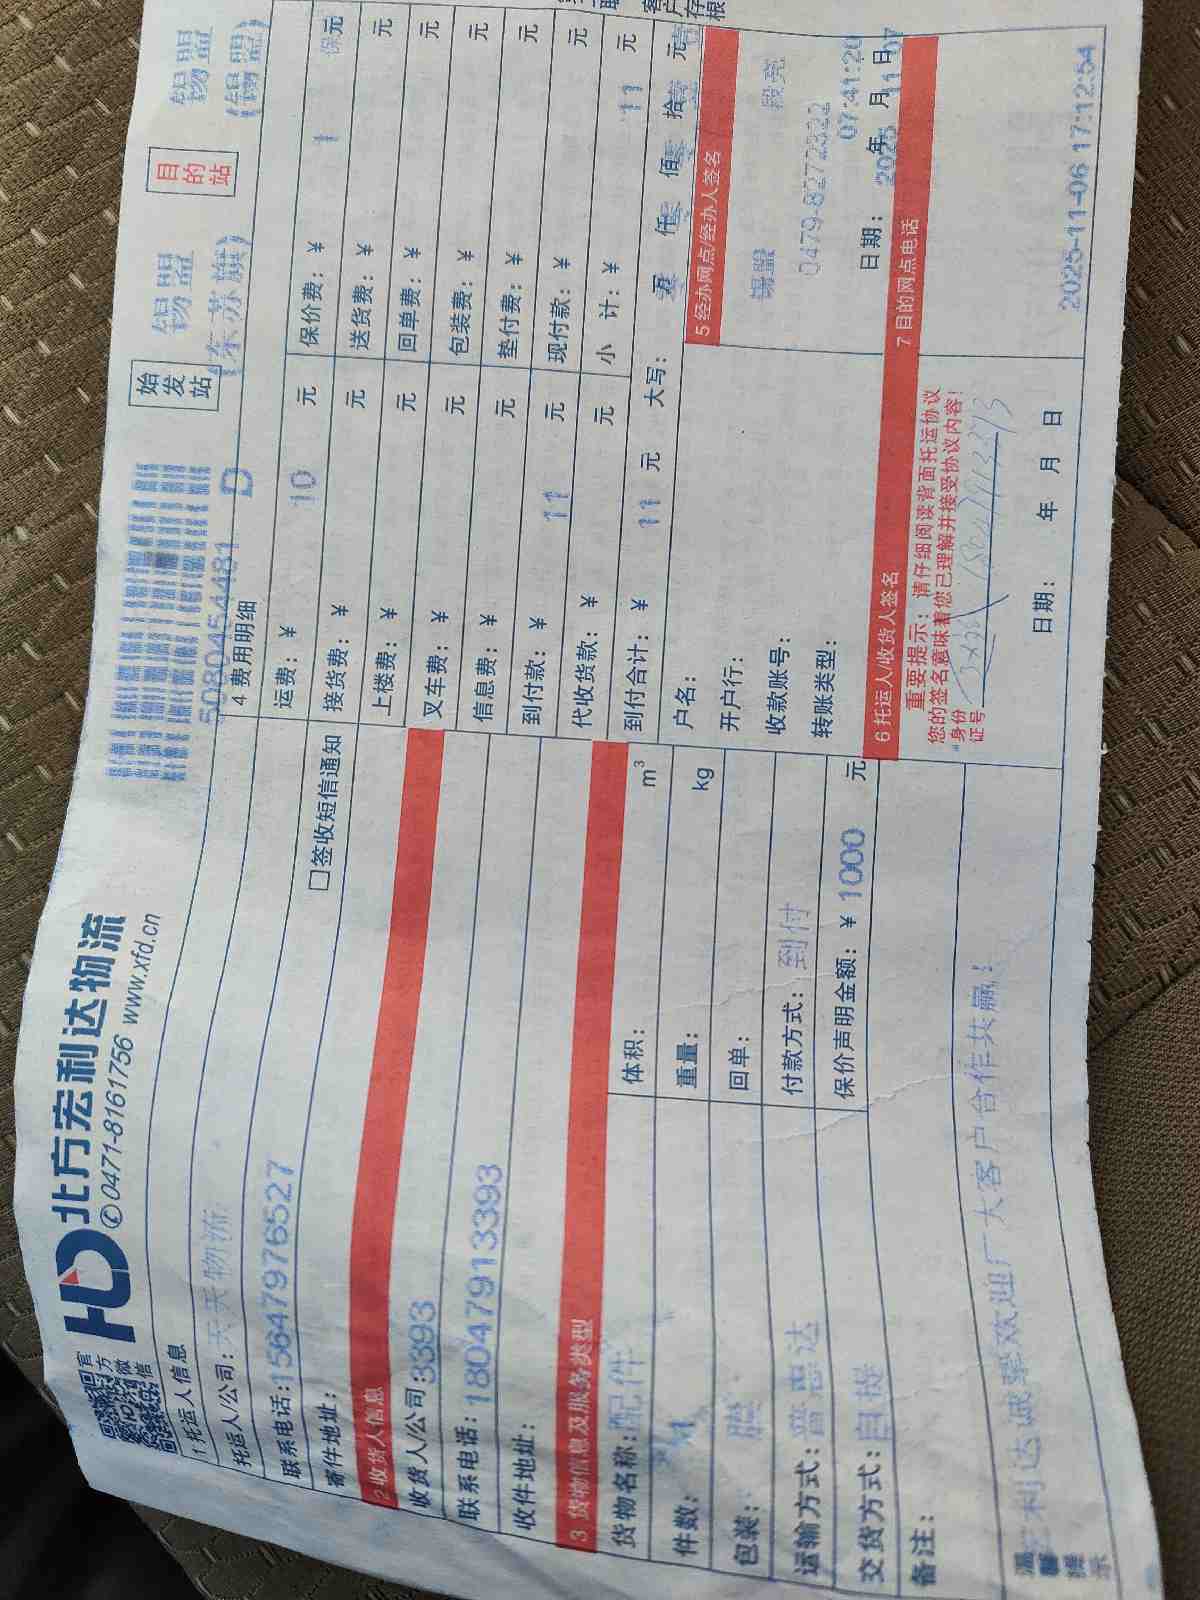 北方宏利达物流
0471-8161756 www.xfd.cn
官方微信
始发站
锡盟
(东苏旗)
目的站
锡盟
(锡盟)
5080454481 D
1 托运人信息
托运人/公司:天天物流
联系电话:15647976527
寄件地址:
□签收短信通知
2 收货人信息
收货人/公司 3393
联系电话:18047913393
收件地址:
3 货物信息及服务类型
货物名称:配件
体积: m³
件数: 1
重量: kg
包装:
回单:
运输方式:普惠达
付款方式:到付
交货方式:自提
保价声明金额:¥ 1000 元
备注:
温馨提示
利达诚挚欢迎广大客户合作共赢!
4 费用明细
运费:¥ 10 元
保价费:¥ 1 元
接货费:¥ 元
送货费:¥ 元
上楼费:¥ 元
回单费:¥ 元
叉车费:¥ 元
包装费:¥ 元
信息费:¥ 元
垫付费:¥ 元
到付款:¥ 11 元
现付款:¥ 元
代收货款:¥ 元
小 计:¥ 11 元
到付合计:¥ 11 元
大写: 万 仟 佰 拾 元
户名:
开户行:
收款账号:
转账类型:
5 经办网点/经办人签名
锡盟 段亮
0479-8272322
07:41:20
日期: 2025 年 11 月 07 日
6 托运人/收货人签名
重要提示:请仔细阅读背面托运协议
您的签名意味着您已理解并接受协议内容!
身份证号
日期: 年 月 日
7 目的网点电话
2025-11-06 17:12:54
客户存根